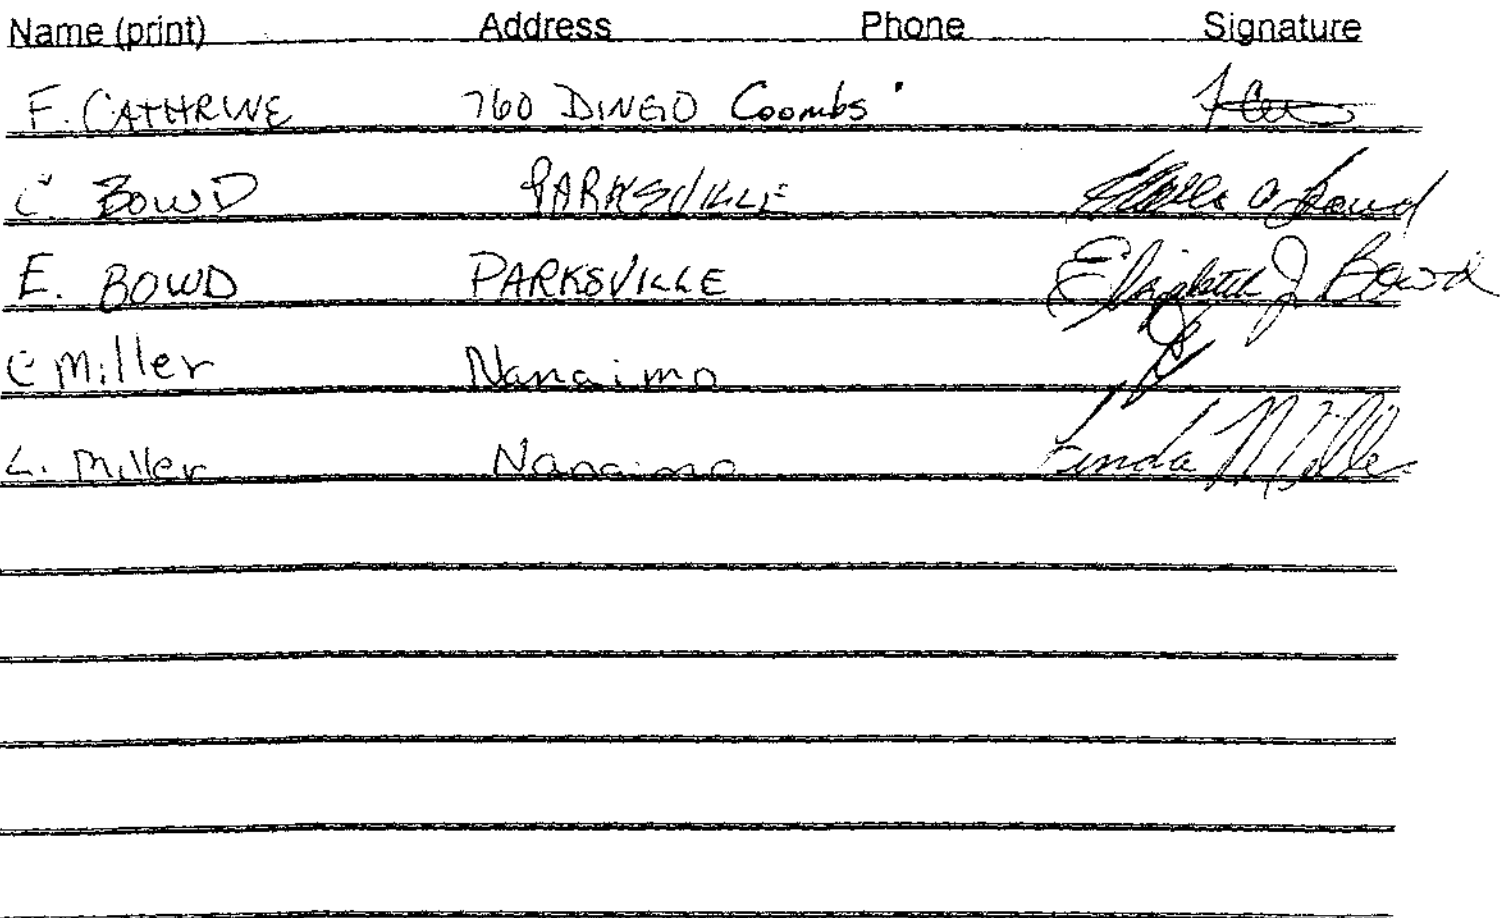 Name (print) Address Phone Signature
F. CATHRINE 760 DINGO Coombs
C. BOWD PARKSVILLE
E. BOWD PARKSVILLE Elizabeth J Bowd
C Miller Nanaimo
L. Miller Nanaimo Linda Miller